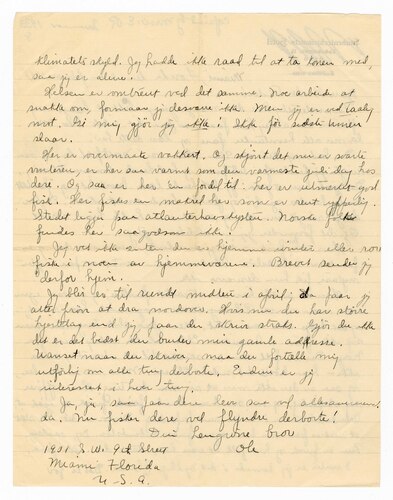 klimatets skyld. Jeg hadde ikke raad til at ta konen med,
saa jeg er alene.
Helsen er omtrent ved det samme. Noe arbeide at
snakke om, formaar jeg desvære ikke. Men jeg er ved taalig
mot. Gi mig gjör jeg ikke i Ikke för sidste timen
slaar.
Her er overmaate vakkert. Og skjönt det nu er svarte
vinteren, er her saa varmt som den varmeste juli dag hos
dere. Og saa er her en fordel til: her er utmerket god
fisk. Her fiskes en makrel her som er rent ypperlig.
Stedet ligger paa atlanterhavskysten. Norske folk
findes her saagodtsom ikke.
Jeg vet ikke enten du er hjemme i vinter eller ror
fiske i noen av hjemmeværene. Brevet sender jeg
derfor hjem.
Jeg blir her til rundt midten i april; da faar jeg
atter prøve at dra nordover. Hvis nu du har större
hjertelag end jeg faar du skrive straks. Gjör du ikke
det er det bedst du bruker min gamle addresse.
Uanset naar du skriver, maa du fortelle mig
utförlig om alle ting derborte. Endnu er jeg
interessert i hver ting.
Ja, ja saa faar dere leve saa vel allesammen!
da. Nu fister dere vel flyndre derborte!
Din hengivne bror
1921 S. W. 9th Street Ole
Miami Florida
U. S. A.